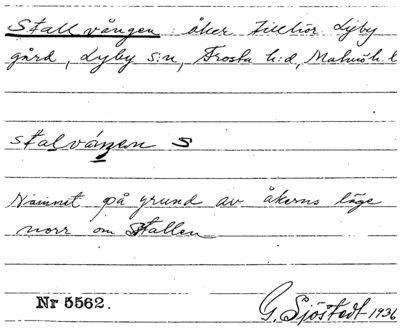 Stallvången: åker tillhör Lyby
gård, Lyby s:n, Frosta h:d, Malmöh. l
stalváŋen S
Namnet på grund av åkerns läge
norr om stallen
Nr 5562.
G. Sjöstedt 1936